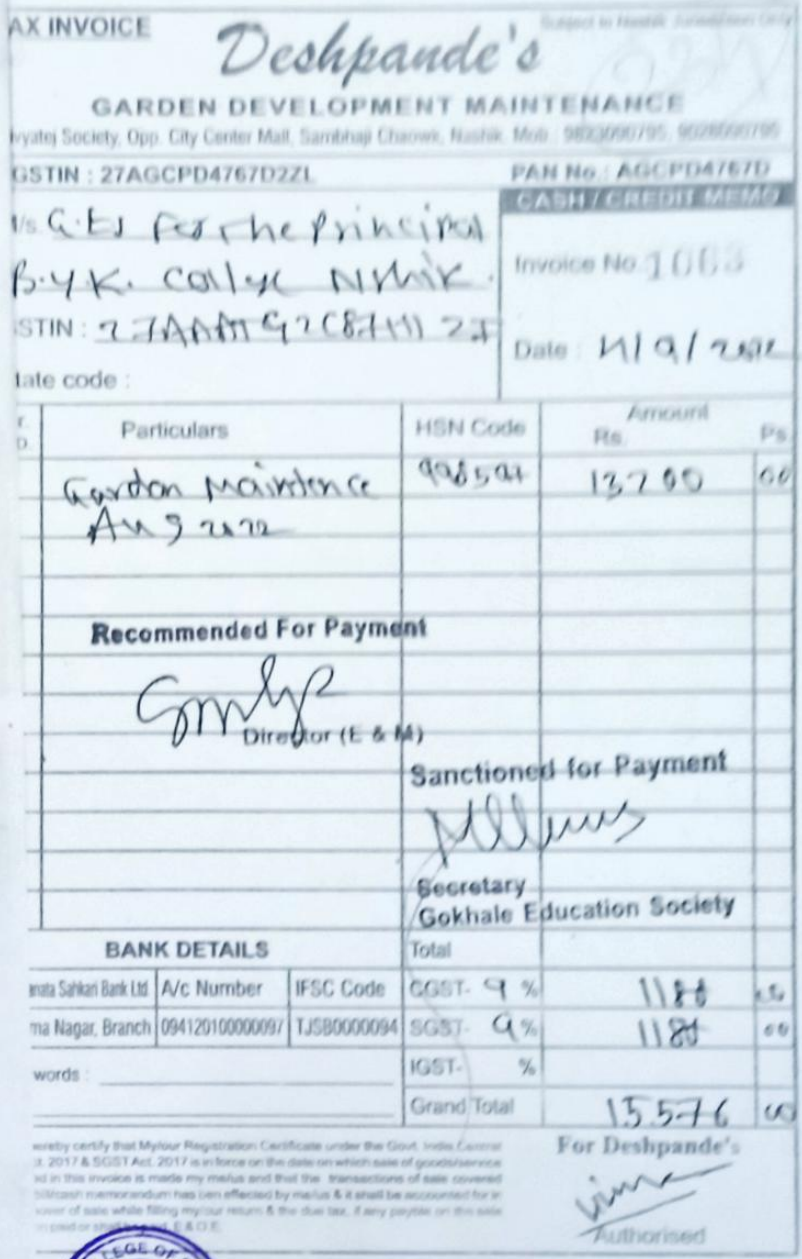 AX INVOICE
Subject to Nashik Jurisdiction Only
Deshpande's
GARDEN DEVELOPMENT MAINTENANCE
vyatej Society, Opp. City Center Mall, Sambhaji Chaowk, Nashik. Mob : 9823090795, 9028090795
GSTIN : 27AGCPD4767D2ZL
PAN No. : AGCPD4767D
CASH / CREDIT MEMO
/s. G.E.S For The Principal
B.Y.K. College Nashik.
Invoice No. 1663
STIN :
Date :
tate code :
Particulars HSN Code Amount
Rs. Ps.
Garden Maintence 13200 00
Aug 2022
Recommended For Payment
Director (E & M)
Sanctioned for Payment
Secretary
Gokhale Education Society
BANK DETAILS Total
anata Sahkari Bank Ltd A/c Number IFSC Code CGST- 9 % 1188 00
ma Nagar, Branch 094120100000097 TJSB0000094 SGST- 9 % 1188 00
words : IGST- %
Grand Total 15576 00
ereby certify that My/our Registration Certificate under the Govt. India Central
t. 2017 & SGST Act. 2017 is in force on the date on which sale of goods/service
ed in this invoice is made my me/us and that the transactions of sale covered
bill/cash memorandum has ben effected by me/us & it shall be accounted for in
nover of sale while filling my/our return & the due tax, if any paybel on this sale
n paid or shall be paid. E & O E
For Deshpande's
Authorised
LEGE OF